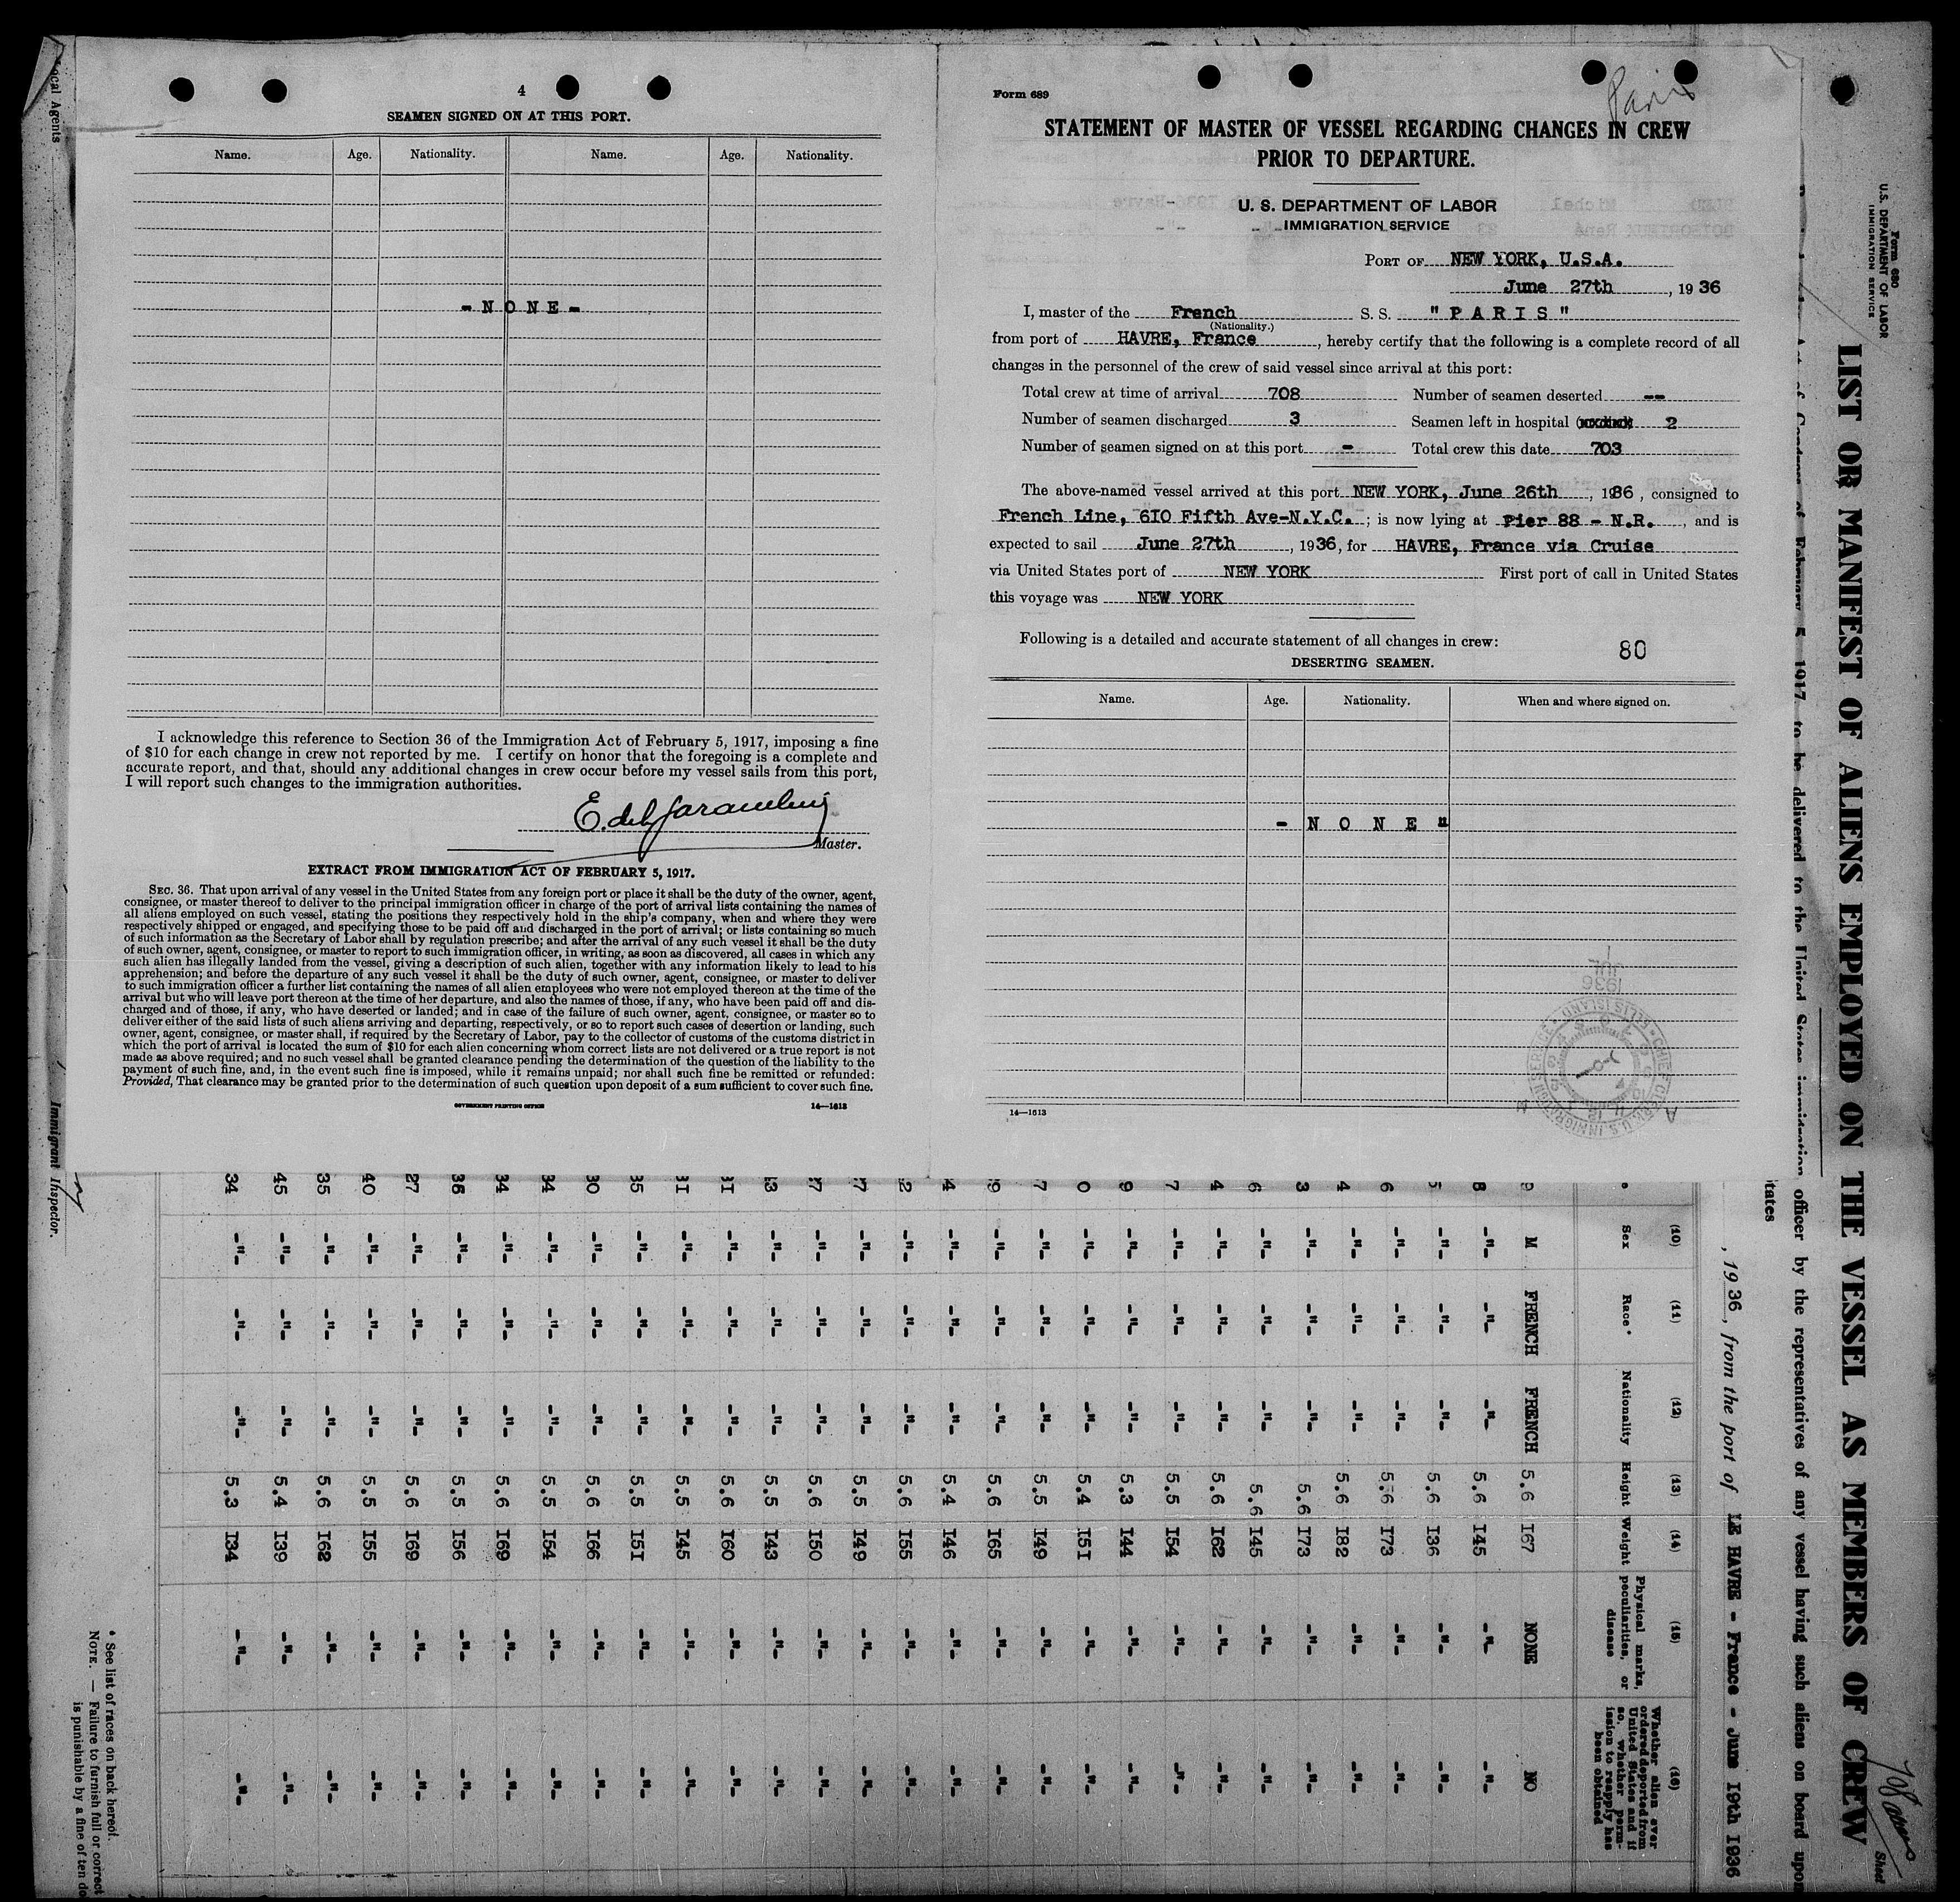 4
SEAMEN SIGNED ON AT THIS PORT.
Name. Age. Nationality. Name. Age. Nationality.
- N O N E -
I acknowledge this reference to Section 36 of the Immigration Act of February 5, 1917, imposing a fine
of $10 for each change in crew not reported by me. I certify on honor that the foregoing is a complete and
accurate report, and that, should any additional changes in crew occur before my vessel sails from this port,
I will report such changes to the immigration authorities.
Master.
EXTRACT FROM IMMIGRATION ACT OF FEBRUARY 5, 1917.
SEC. 36. That upon arrival of any vessel in the United States from any foreign port or place it shall be the duty of the owner, agent,
consignee, or master thereof to deliver to the principal immigration officer in charge of the port of arrival lists containing the names of
all aliens employed on such vessel, stating the positions they respectively hold in the ship's company, when and where they were
respectively shipped or engaged, and specifying those to be paid off and discharged in the port of arrival; or lists containing so much
of such information as the Secretary of Labor shall by regulation prescribe; and after the arrival of any such vessel it shall be the duty
of such owner, agent, consignee, or master to report to such immigration officer, in writing, as soon as discovered, all cases in which any
such alien has illegally landed from the vessel, giving a description of such alien, together with any information likely to lead to his
apprehension; and before the departure of any such vessel it shall be the duty of such owner, agent, consignee, or master to deliver
to such immigration officer a further list containing the names of all alien employees who were not employed thereon at the time of the
arrival but who will leave port thereon at the time of her departure, and also the names of those, if any, who have been paid off and dis-
charged and of those, if any, who have deserted or landed; and in case of the failure of such owner, agent, consignee, or master so to
deliver either of the said lists of such aliens arriving and departing, respectively, or so to report such cases of desertion or landing, such
owner, agent, consignee, or master shall, if required by the Secretary of Labor, pay to the collector of customs of the customs district in
which the port of arrival is located the sum of $10 for each alien concerning whom correct lists are not delivered or a true report is not
made as above required; and no such vessel shall be granted clearance pending the determination of the question of the liability to the
payment of such fine, and, in the event such fine is imposed, while it remains unpaid; nor shall such fine be remitted or refunded:
Provided, That clearance may be granted prior to the determination of such question upon deposit of a sum sufficient to cover such fine.
GOVERNMENT PRINTING OFFICE 14—1613
Form 689
Paris
STATEMENT OF MASTER OF VESSEL REGARDING CHANGES IN CREW
PRIOR TO DEPARTURE.
U. S. DEPARTMENT OF LABOR
IMMIGRATION SERVICE
PORT OF NEW YORK, U.S.A.
June 27th, 1936
I, master of the French S. S. "P A R I S"
(Nationality.)
from port of HAVRE, France, hereby certify that the following is a complete record of all
changes in the personnel of the crew of said vessel since arrival at this port:
Total crew at time of arrival 708 Number of seamen deserted --
Number of seamen discharged 3 Seamen left in hospital 2
Number of seamen signed on at this port - Total crew this date 703
The above-named vessel arrived at this port NEW YORK, June 26th, 1936, consigned to
French Line, 610 Fifth Ave-N.Y.C.; is now lying at Pier 88 - N.R., and is
expected to sail June 27th, 1936, for HAVRE, France via Cruise
via United States port of NEW YORK First port of call in United States
this voyage was NEW YORK
Following is a detailed and accurate statement of all changes in crew:
80
DESERTING SEAMEN.
Name. Age. Nationality. When and where signed on.
- N O N E "
14—1613
Form 680
U.S. DEPARTMENT OF LABOR
IMMIGRATION SERVICE
LIST OR MANIFEST OF ALIENS EMPLOYED ON THE VESSEL AS MEMBERS OF CREW
Sheet
1917, to be delivered to the United States immigration officer by the representatives of any vessel having such aliens on board upon
tates
, 1936, from the port of LE HAVRE - France - June 19th 1936
(10) (11) (12) (13) (14) (15) (16)
Sex Race* Nationality Height Weight Physical marks, peculiarities, or disease Whether alien ever ordered deported from United States and if so, whether permission to reapply has been obtained
9 M FRENCH FRENCH 5.6 I67 NONE NO
8 -"- -"- -"- 5.6 I45 -"- -"-
5 -"- -"- -"- 5.6 I36 -"- -"-
6 -"- -"- -"- 5.6 I73 -"- -"-
4 -"- -"- -"- 5.6 I82 -"- -"-
3 -"- -"- -"- 5.6 I73 -"- -"-
6 -"- -"- -"- 5.6 I45 -"- -"-
4 -"- -"- -"- 5.6 I62 -"- -"-
7 -"- -"- -"- 5.5 I54 -"- -"-
9 -"- -"- -"- 5.3 I44 -"- -"-
0 -"- -"- -"- 5.4 I5I -"- -"-
7 -"- -"- -"- 5.5 I49 -"- -"-
9 -"- -"- -"- 5.6 I65 -"- -"-
4 -"- -"- -"- 5.4 I46 -"- -"-
2 -"- -"- -"- 5.6 I55 -"- -"-
7 -"- -"- -"- 5.5 I49 -"- -"-
7 -"- -"- -"- 5.6 I50 -"- -"-
3 -"- -"- -"- 5.5 I43 -"- -"-
3I -"- -"- -"- 5.6 I60 -"- -"-
3I -"- -"- -"- 5.5 I45 -"- -"-
35 -"- -"- -"- 5.5 I5I -"- -"-
30 -"- -"- -"- 5.6 I66 -"- -"-
34 -"- -"- -"- 5.5 I54 -"- -"-
34 -"- -"- -"- 5.6 I69 -"- -"-
36 -"- -"- -"- 5.5 I56 -"- -"-
27 -"- -"- -"- 5.6 I69 -"- -"-
40 -"- -"- -"- 5.5 I55 -"- -"-
35 -"- -"- -"- 5.6 I62 -"- -"-
45 -"- -"- -"- 5.4 I39 -"- -"-
34 -"- -"- -"- 5.3 I34 -"- -"-
* See list of races on back hereof.
NOTE. — Failure to furnish full or correct
is punishable by a fine of ten do
Local Agents
Immigrant Inspector.